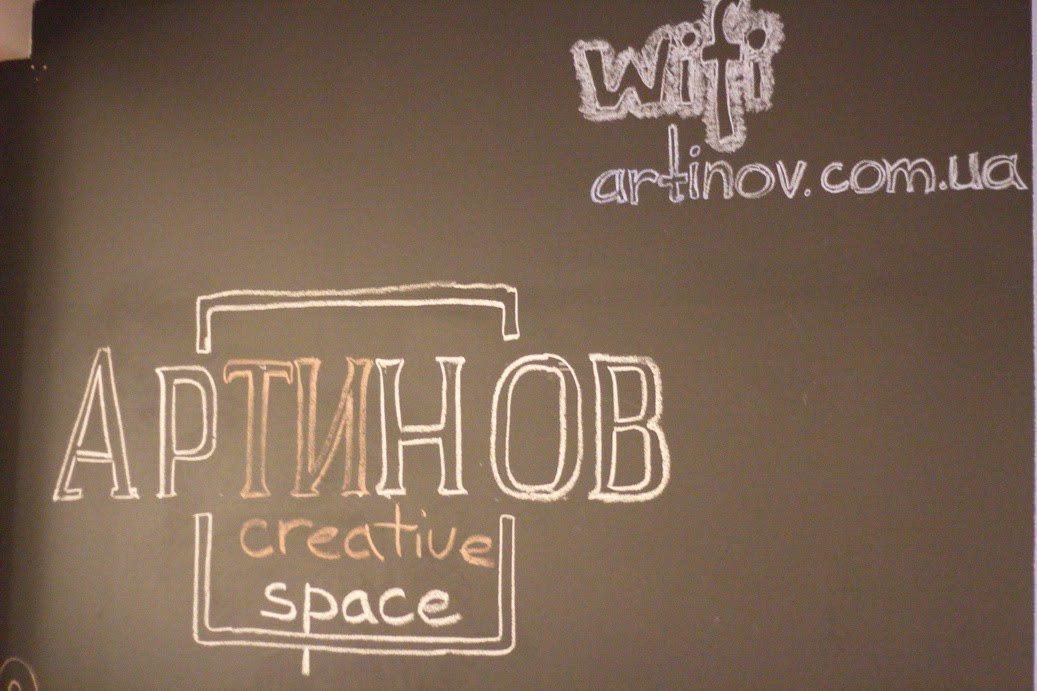 wifi
artinov.com.ua
АРТИНОВ
creative
space